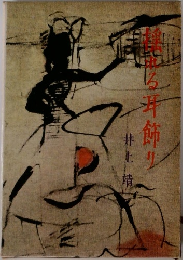 揺れる耳飾り
井上 靖